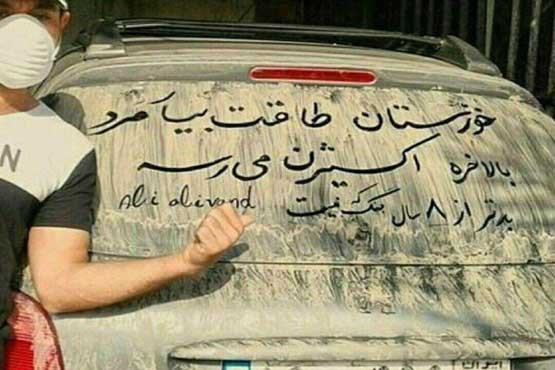 خوزستان طاقت بیاور مرد
بالاخره اکسیژن می رسه
بدتر از ۸ سال جنگ نیست
Ali alivand